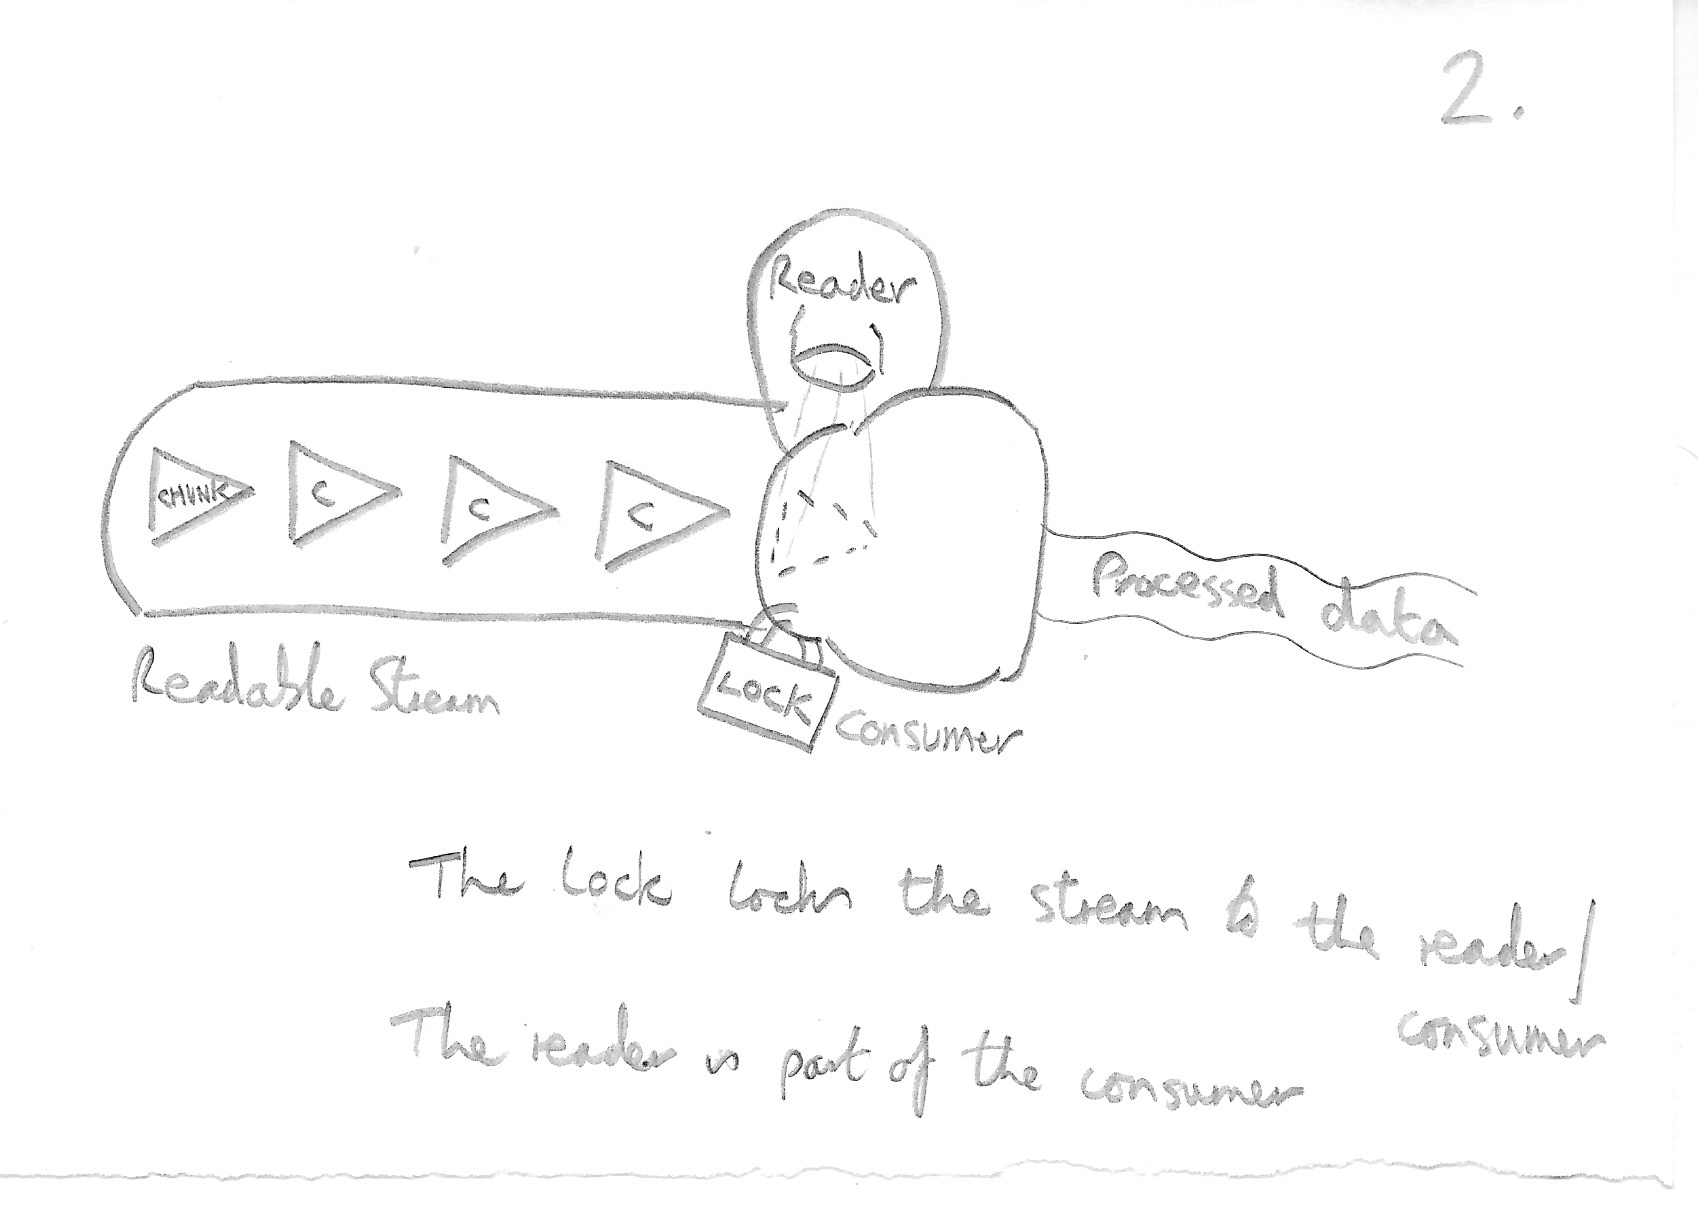 2.
Reader
CHUNK C C C
Processed data
Readable Stream
LOCK
consumer
The Lock locks the stream to the reader/
consumer
The reader is part of the consumer